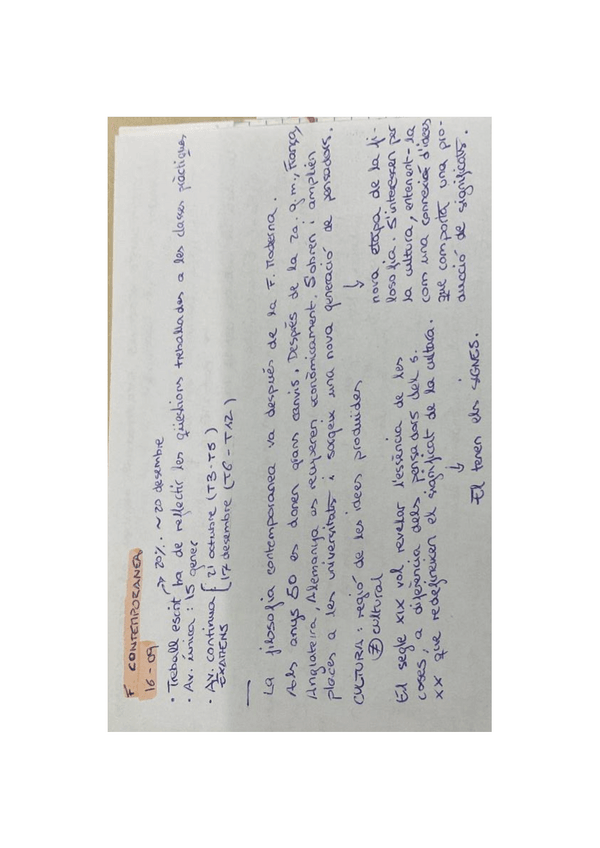 F. CONTEMPORANEA
16-09
→ 20%. ~ 20 desembre
· Treball escrit ha de reflectir les qüestions treballades a les classes pràctiques
· Av. única: 15 gener
· Av. contínua [ 21 octubre (T3-T5)
EXÀMENS 17 desembre (T6-T12)
—
La filosofia contemporanea va després de la F. Moderna.
Als anys 50 es donen grans canvis. Després de la 2a. g.m., França,
Anglaterra, Alemanya es recuperen econòmicament. S'obren i amplien
places a les universitats i sorgeix una nova generació de pensadors.
↓
CULTURA: regió de les idees produïdes
≠ cultural
nova etapa de la fi-
losofia. S'interessen per
la cultura, entenent-la
com una connexió d'idees
que comporta una pro-
ducció de significats.
El segle XIX vol revelar l'essència de les
coses, a diferència dels pensadors del s.
XX que redefineixen el significat de la cultura.
↓
El tenen els SIGNES.